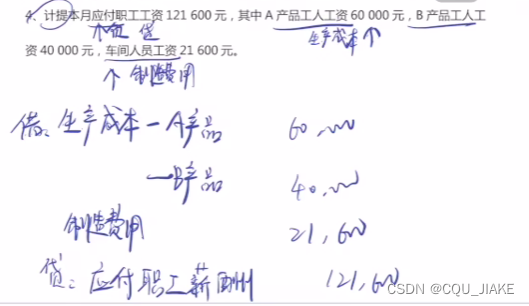 4、计提本月应付职工工资 121 600 元，其中 A 产品工人工资 60 000 元，B 产品工人工
负债 贷 生产成本↑
资 40 000 元，车间人员工资 21 600 元。
↑ 制造费用
借：生产成本—A产品 60,000
—B产品 40,000
制造费用 21,600
贷：应付职工薪酬 121,600
CSDN @CQU_JIAKE